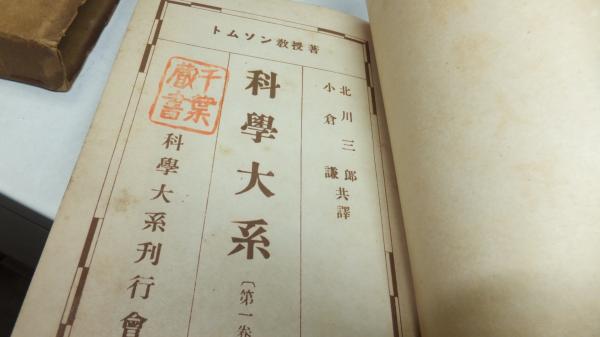 トムソン教授著
北川三郎
小倉謙共譯
科學大系
〔第一卷
科學大系刊行會
千葉
藏書